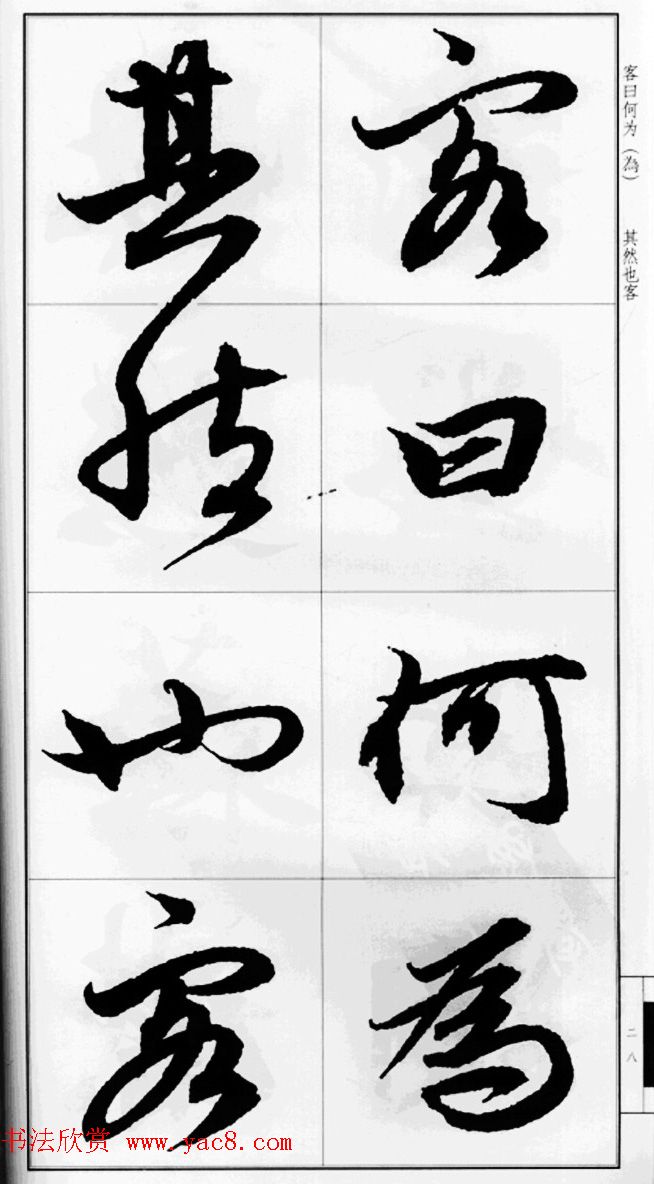 客曰何為
其然也客
客曰何为（為）　其然也客
二八
书法欣赏 www.yac8.com